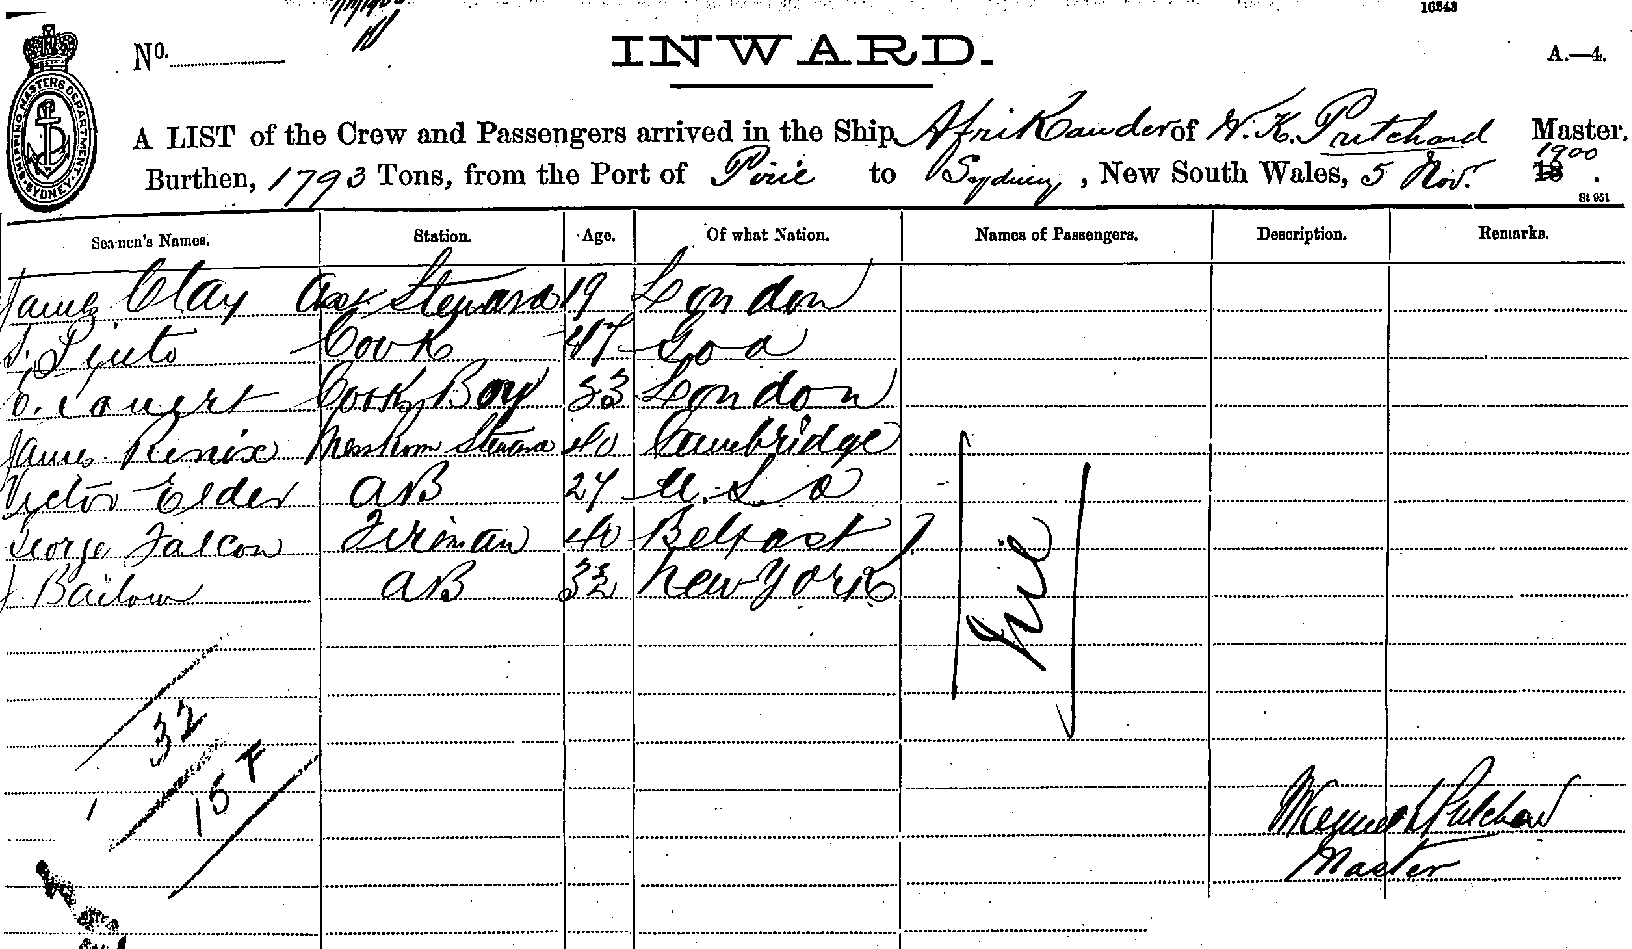 16343
No.
INWARD.
A.—4.
SHIPPING MASTERS DEPARTMENT. SYDNEY.
A LIST of the Crew and Passengers arrived in the Ship Afrikander of W. K. Pritchard Master.
Burthen, 1793 Tons, from the Port of Pirie to Sydney, New South Wales, 5 Nov. 1900
St 951
Seamen's Names. Station. Age. Of what Nation. Names of Passengers. Description. Remarks.
James Clay Asst Steward 19 London
Pinto Cook 47 Goa
Cooks Boy 33 London
James Renix Messroom Steward 40 Cambridge
Victor Elder AB 27 U.S.A
George Falcon Firiman 40 Belfast
J. AB 32 New York
Nil
32
15 F
Pritchard
Master